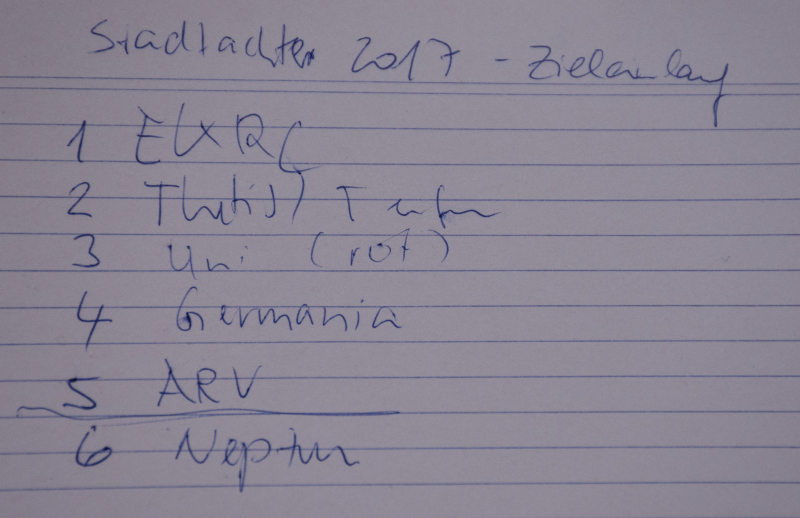 Stadtachter 2017 - Zieleinlauf
1 ELXRC
2 Thetis/
3 Uni (rot)
4 Germania
5 ARV
6 Neptun